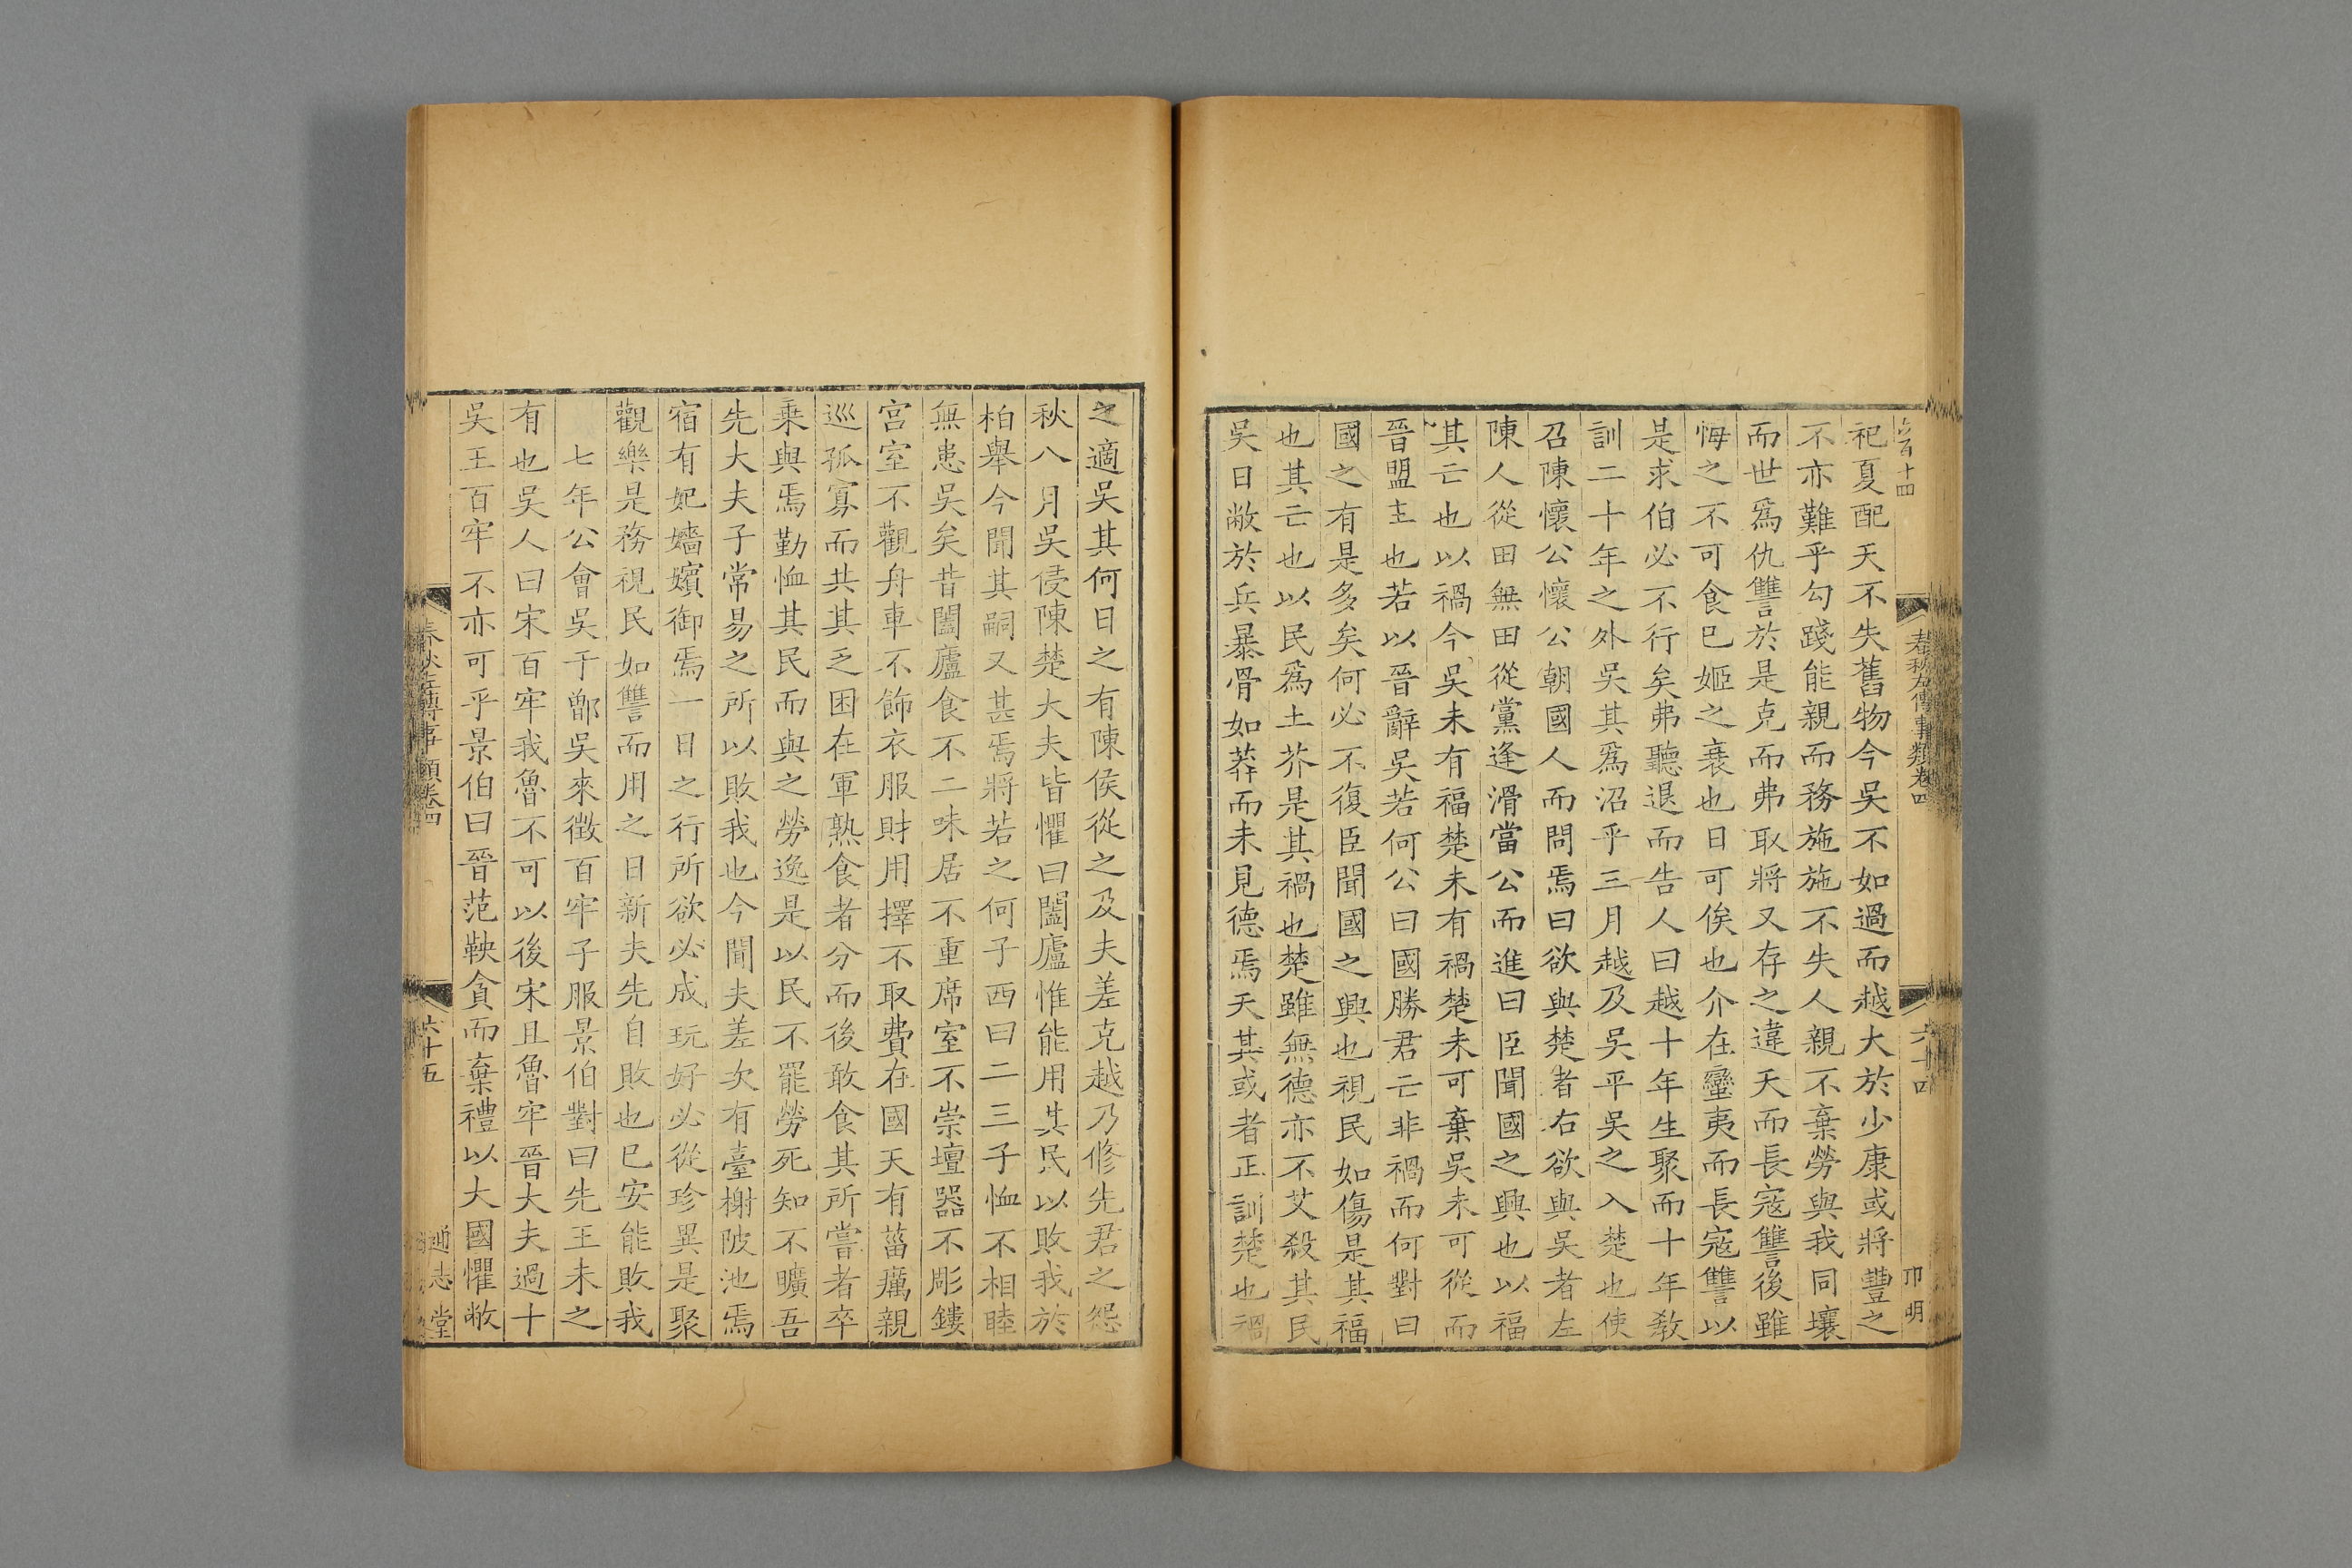 祀夏配天不失舊物今吳不如過而越大於少康或將豐之
不亦難乎勾踐能親而務施施不失人親不棄勞與我同壤
而世爲仇讐於是克而弗取將又存之違天而長寇讐後雖
悔之不可食已姬之衰也日可俟也介在蠻夷而長寇讐以
是求伯必不行矣弗聽退而告人曰越十年生聚而十年教
訓二十年之外吳其爲沼乎三月越及吳平吳之入楚也使
召陳懷公懷公朝國人而問焉曰欲與楚者右欲與吳者左
陳人從田無田從黨逢滑當公而進曰臣聞國之興也以福
其亡也以禍今吳未有福楚未有禍楚未可棄吳未可從而
晉盟主也若以晉辭吳若何公曰國勝君亡非禍而何對曰
國之有是多矣何必不復臣聞國之興也視民如傷是其福
也其亡也以民爲土芥是其禍也楚雖無德亦不艾殺其民
吳日敝於兵暴骨如莽而未見德焉天其或者正訓楚也禍
春秋左傳事類卷四
六十四
之適吳其何日之有陳侯從之及夫差克越乃修先君之怨
秋八月吳侵陳楚大夫皆懼曰闔廬惟能用其民以敗我於
柏舉今聞其嗣又甚焉將若之何子西曰二三子恤不相睦
無患吳矣昔闔廬食不二味居不重席室不崇壇器不彫鏤
宮室不觀舟車不飾衣服財用擇不取費在國天有菑癘親
巡孤寡而共其乏困在軍熟食者分而後敢食其所嘗者卒
乘與焉勤恤其民而與之勞逸是以民不罷勞死知不曠吾
先大夫子常易之所以敗我也今聞夫差次有臺榭陂池焉
宿有妃嬙嬪御焉一日之行所欲必成玩好必從珍異是聚
觀樂是務視民如讐而用之日新夫先自敗也已安能敗我
七年公會吳于鄫吳來徵百牢子服景伯對曰先王未之
有也吳人曰宋百牢我魯不可以後宋且魯牢晉大夫過十
吳王百牢不亦可乎景伯曰晉范鞅貪而棄禮以大國懼敝
春秋左傳事類卷四
六十五
通志堂